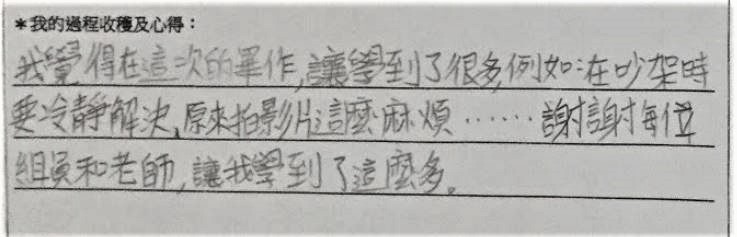 ＊我的過程收穫及心得：
我覺得在這次的畢作,讓學到了很多,例如:在吵架時
要冷靜解決,原來拍影片這麼麻煩……謝謝每位
組員和老師,讓我學到了這麼多。